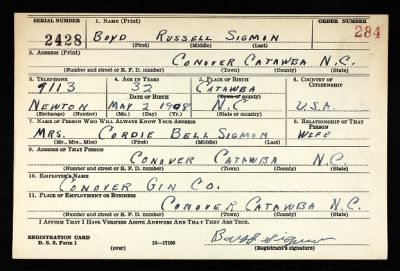 SERIAL NUMBER 1. NAME (Print) ORDER NUMBER
2428 BOYD RUSSELL SIGMON 284
(First) (Middle) (Last)
2. ADDRESS (Print)
CONOVER CATAWBA N.C.
(Number and street or R. F. D. number) (Town) (County) (State)
3. TELEPHONE 4. AGE IN YEARS 5. PLACE OF BIRTH 6. COUNTRY OF CITIZENSHIP
9113 32 CATAWBA
DATE OF BIRTH (Town or county)
NEWTON MAY 2 1908 N.C U.S.A.
(Exchange) (Number) (Mo.) (Day) (Yr.) (State or country)
7. NAME OF PERSON WHO WILL ALWAYS KNOW YOUR ADDRESS 8. RELATIONSHIP OF THAT PERSON
MRS. CORDIE BELL SIGMON WIFE
(Mr., Mrs., Miss) (First) (Middle) (Last)
9. ADDRESS OF THAT PERSON
CONOVER CATAWBA N.C.
(Number and street or R. F. D. number) (Town) (County) (State)
10. EMPLOYER'S NAME
CONOVER GIN CO.
11. PLACE OF EMPLOYMENT OR BUSINESS
CONOVER CATAWBA N.C.
(Number and street or R. F. D. number) (Town) (County) (State)
I AFFIRM THAT I HAVE VERIFIED ABOVE ANSWERS AND THAT THEY ARE TRUE.
REGISTRATION CARD
D. S. S. Form 1 (over) 16—17105 Boyd Sigmon
(Registrant's signature)